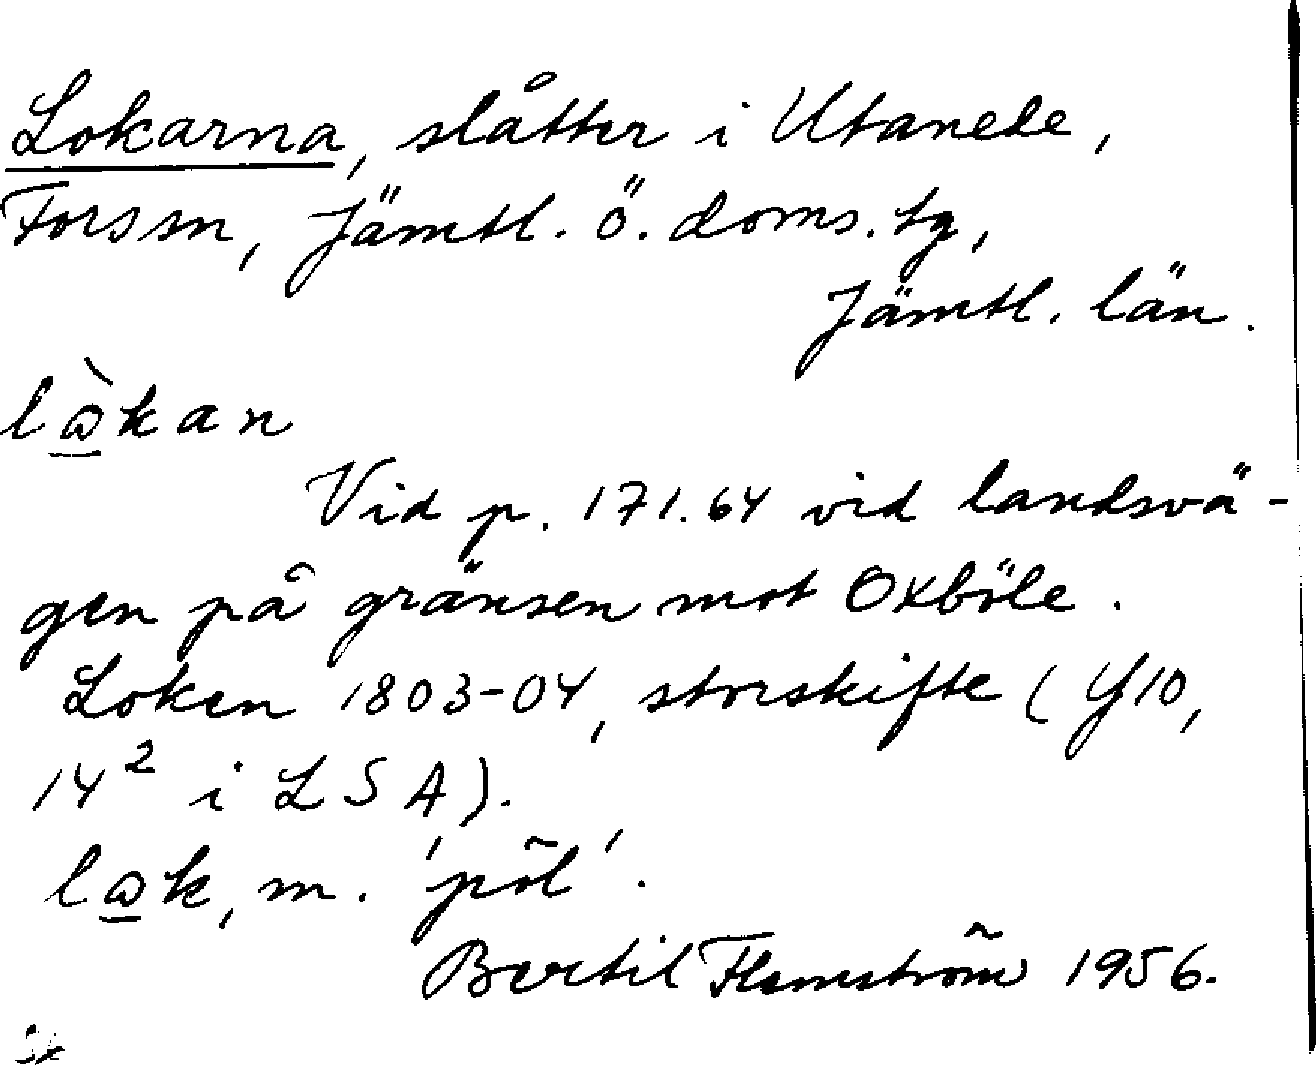 Lokarna, slåtter i Utanede,
Forssn, Jämtl. ö. doms. tg,
Jämtl. län.
lὼ̱kan
Vid p. 171.64 vid landsvä-
gen på gränsen mot Oxböle.
Loken 1803-04, storskifte (Y10,
14² i LSA).
lω̱k, m. 'pöl'.
Bertil Flemström 1956.